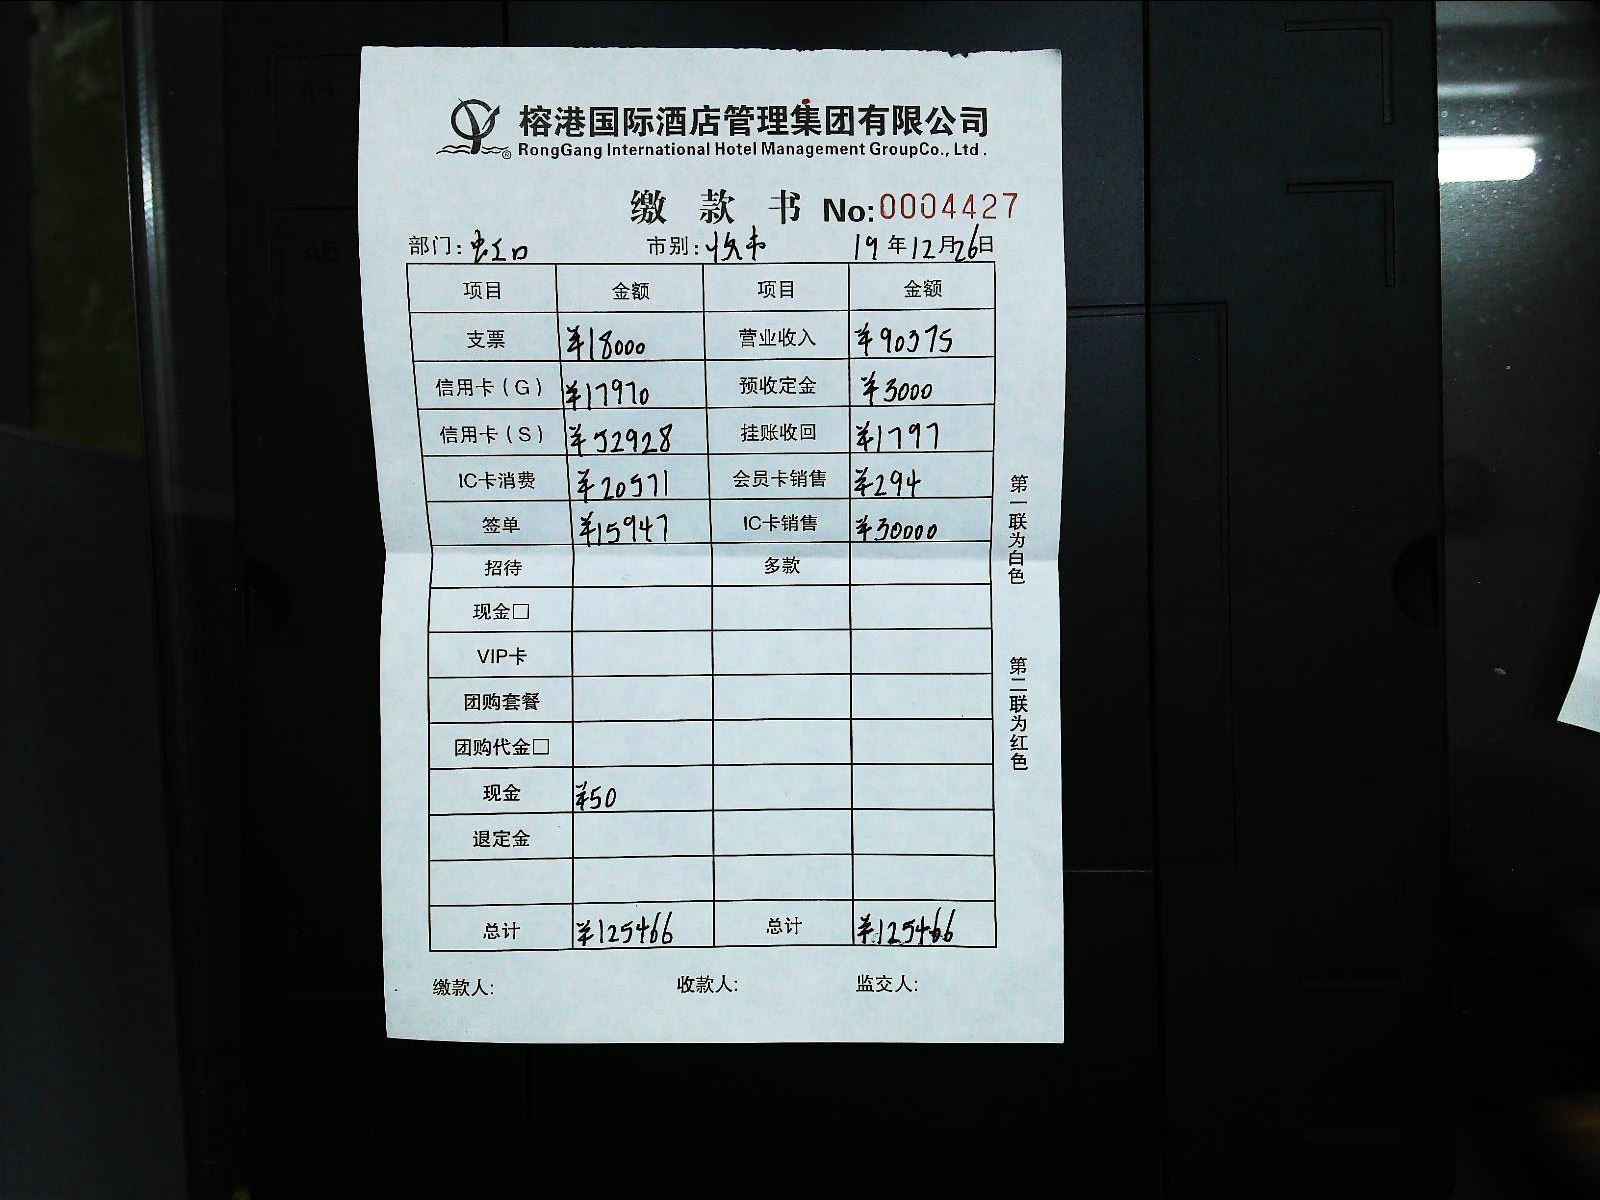 榕港国际酒店管理集团有限公司
®RongGang International Hotel Management GroupCo., Ltd.
缴 款 书 No:0004427
部门: 虹口 市别: 收市 19年12月26日
项目 金额 项目 金额
支票 ¥18000 营业收入 ¥90375
信用卡(G) ¥17970 预收定金 ¥3000
信用卡(S) ¥52928 挂账收回 ¥1797
IC卡消费 ¥20571 会员卡销售 ¥294
签单 ¥15947 IC卡销售 ¥30000
招待 多款
现金□
VIP卡
团购套餐
团购代金□
现金 ¥50
退定金
总计 ¥125466 总计 ¥125466
缴款人: 收款人: 监交人:
第一联为白色
第二联为红色